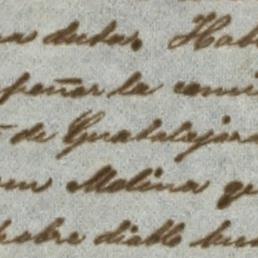 na dudas. Hab
peñar la comi
de Guadalajar
en Molina qu
pobre diablo bus